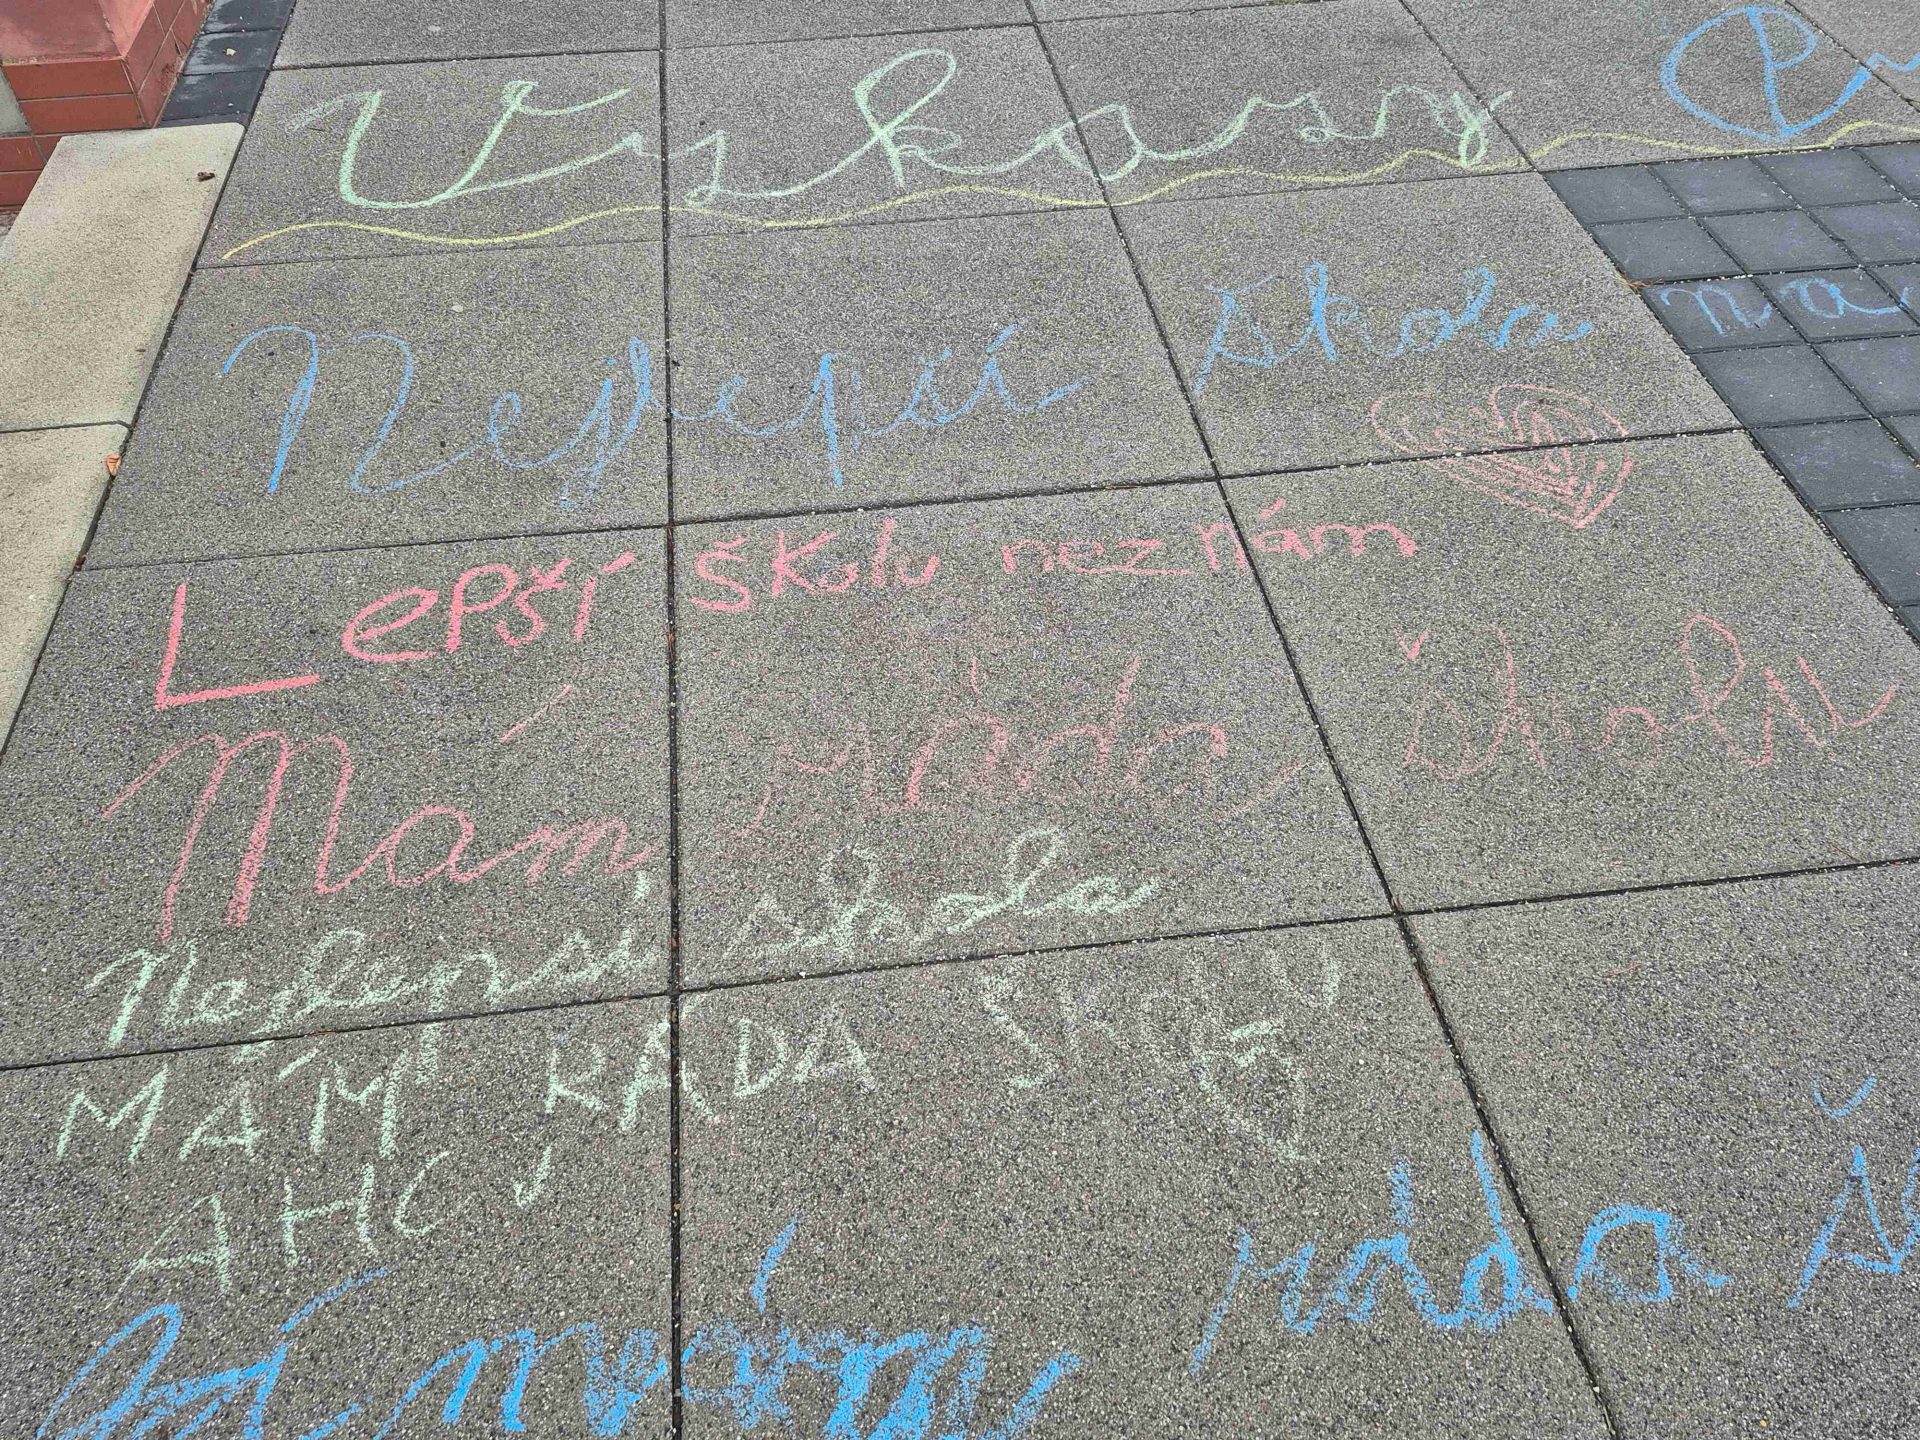 Vzkazy
na
Nejlepší škola
Lepší školu neznám
Mám ráda školu
Nejlepsí skola
MÁM RÁDA ŠKOLU
AHOJ
mám ráda